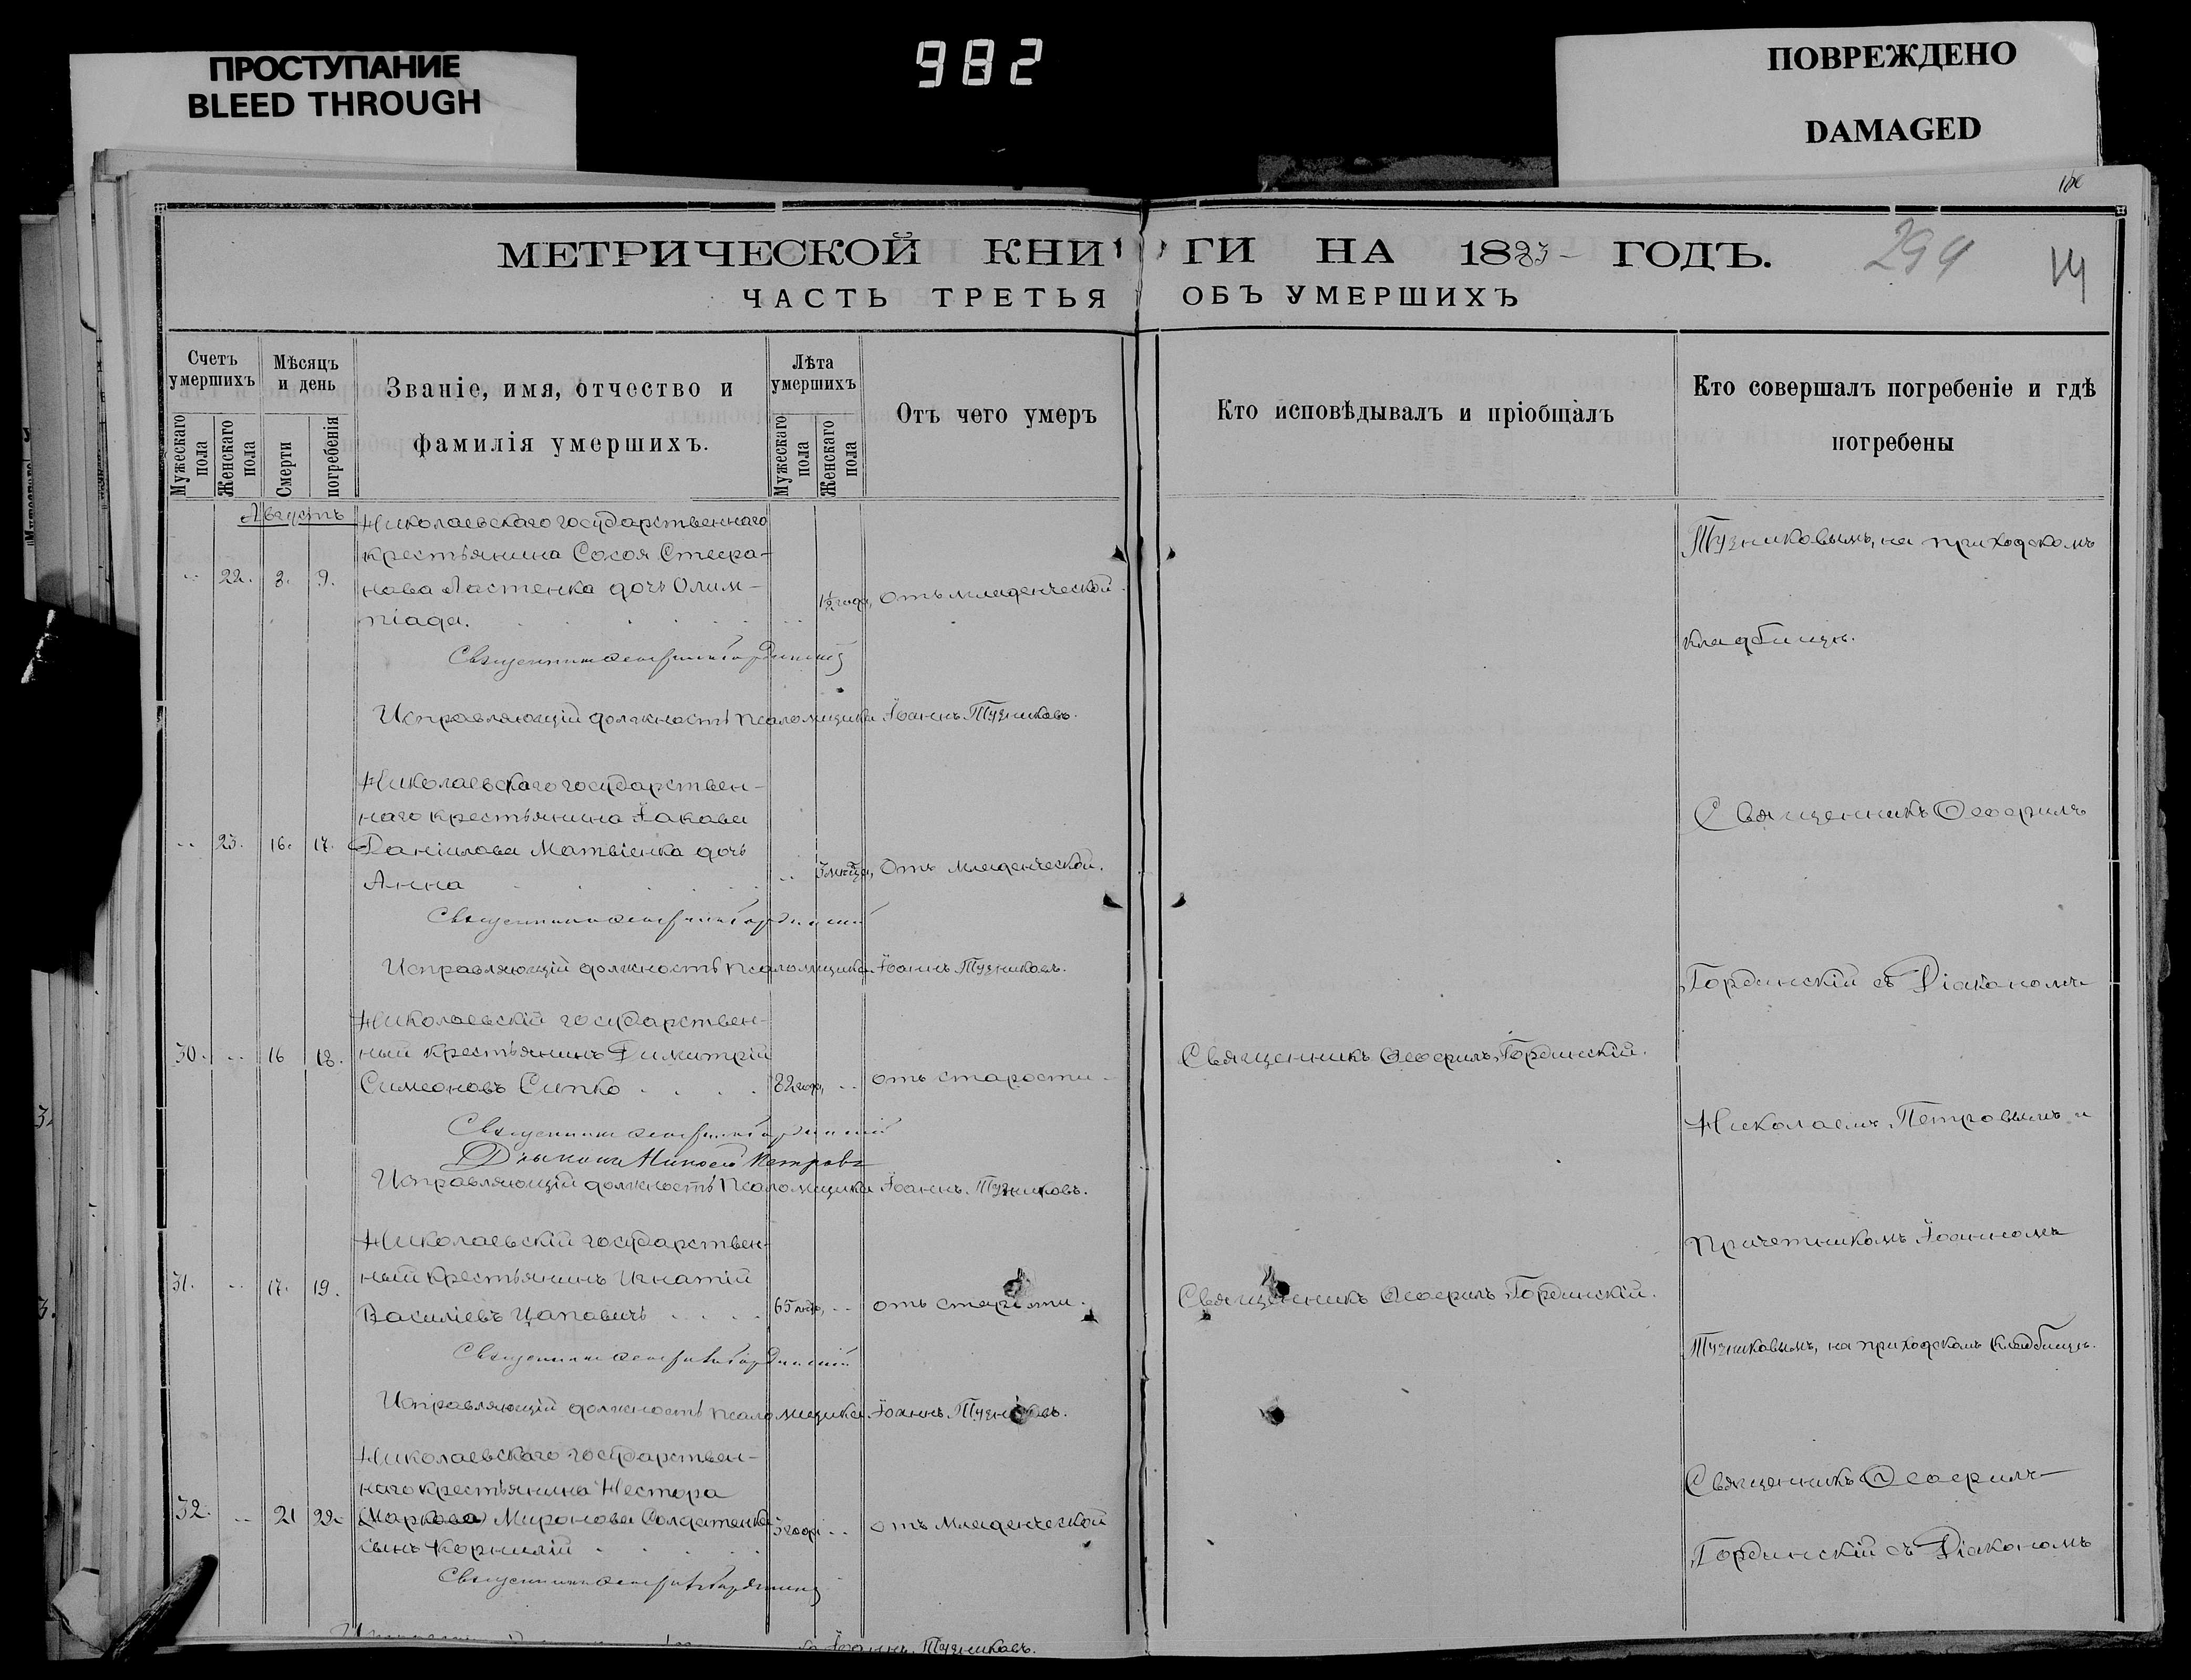 ПРОСТУПАНИЕ
BLEED THROUGH
982
ПОВРЕЖДЕНО
DAMAGED
МЕТРИЧЕСКОЙ КНИГИ НА 1883 ГОДЪ.
294
ЧАСТЬ ТРЕТЬЯ ОБЪ УМЕРШИХЪ
Счетъ умершихъ
Мужескаго пола
Женскаго пола
Мѣсяцъ и день
Смерти
погребенія
Званіе, имя, отчество и
фамилія умершихъ.
Лѣта умершихъ
Мужескаго пола
Женскаго пола
Отъ чего умеръ
Кто исповѣдывалъ и пріобщалъ
Кто совершалъ погребеніе и гдѣ
погребены
Августъ
Николаевскаго государственнаго
крестьянина Сосоя Стефа-
22. 8. 9. нова Ластенка дочь Олим-
піада. 1½ года, отъ младенческой.
Тузниковымъ, на приходскомъ
кладбищѣ.
Священникъ Ѳеофилъ Гординскій
Исправляющій должность псаломщика Іоаннъ Тузниковъ.
Николаевскаго государствен-
наго крестьянина Іакова
23. 16. 17. Даніилова Матвіенка дочь
Анна 3 мѣсяца, отъ младенческой.
Священникъ Ѳеофилъ Гординскій
Исправляющій должность псаломщика Іоаннъ Тузниковъ.
Священникъ Ѳеофилъ
Гординскій съ Діакономъ
Николаевскій государствен-
30. 16 18. ный крестьянинъ Димитрій
Симеоновъ Сипко 82 года, отъ старости
Священникъ Ѳеофилъ Гординскій.
Священникъ Ѳеофилъ Гординскій
Діаконъ Николай Петровъ
Исправляющій должность псаломщика Іоаннъ Тузниковъ.
Николаемъ Петровымъ и
Николаевскій государствен-
31. 17. 19. ный крестьянинъ Игнатій
Василіевъ Цаповичъ 65 лѣтъ, отъ старости.
Священникъ Ѳеофилъ Гординскій.
Священникъ Ѳеофилъ Гординскій
Исправляющій должность псаломщика Іоаннъ Тузниковъ.
причетникомъ Іоанномъ
Тузниковымъ, на приходскомъ кладбищѣ.
Николаевскаго государствен-
наго крестьянина Нестора
32. 21 22 (Маркова) Миронова Солдатенка
сынъ Корнилій 3 года отъ младенческой
Священникъ Ѳеофилъ Гординскій
Іоаннъ Тузниковъ.
Священникъ Ѳеофилъ
Гординскій съ Діакономъ